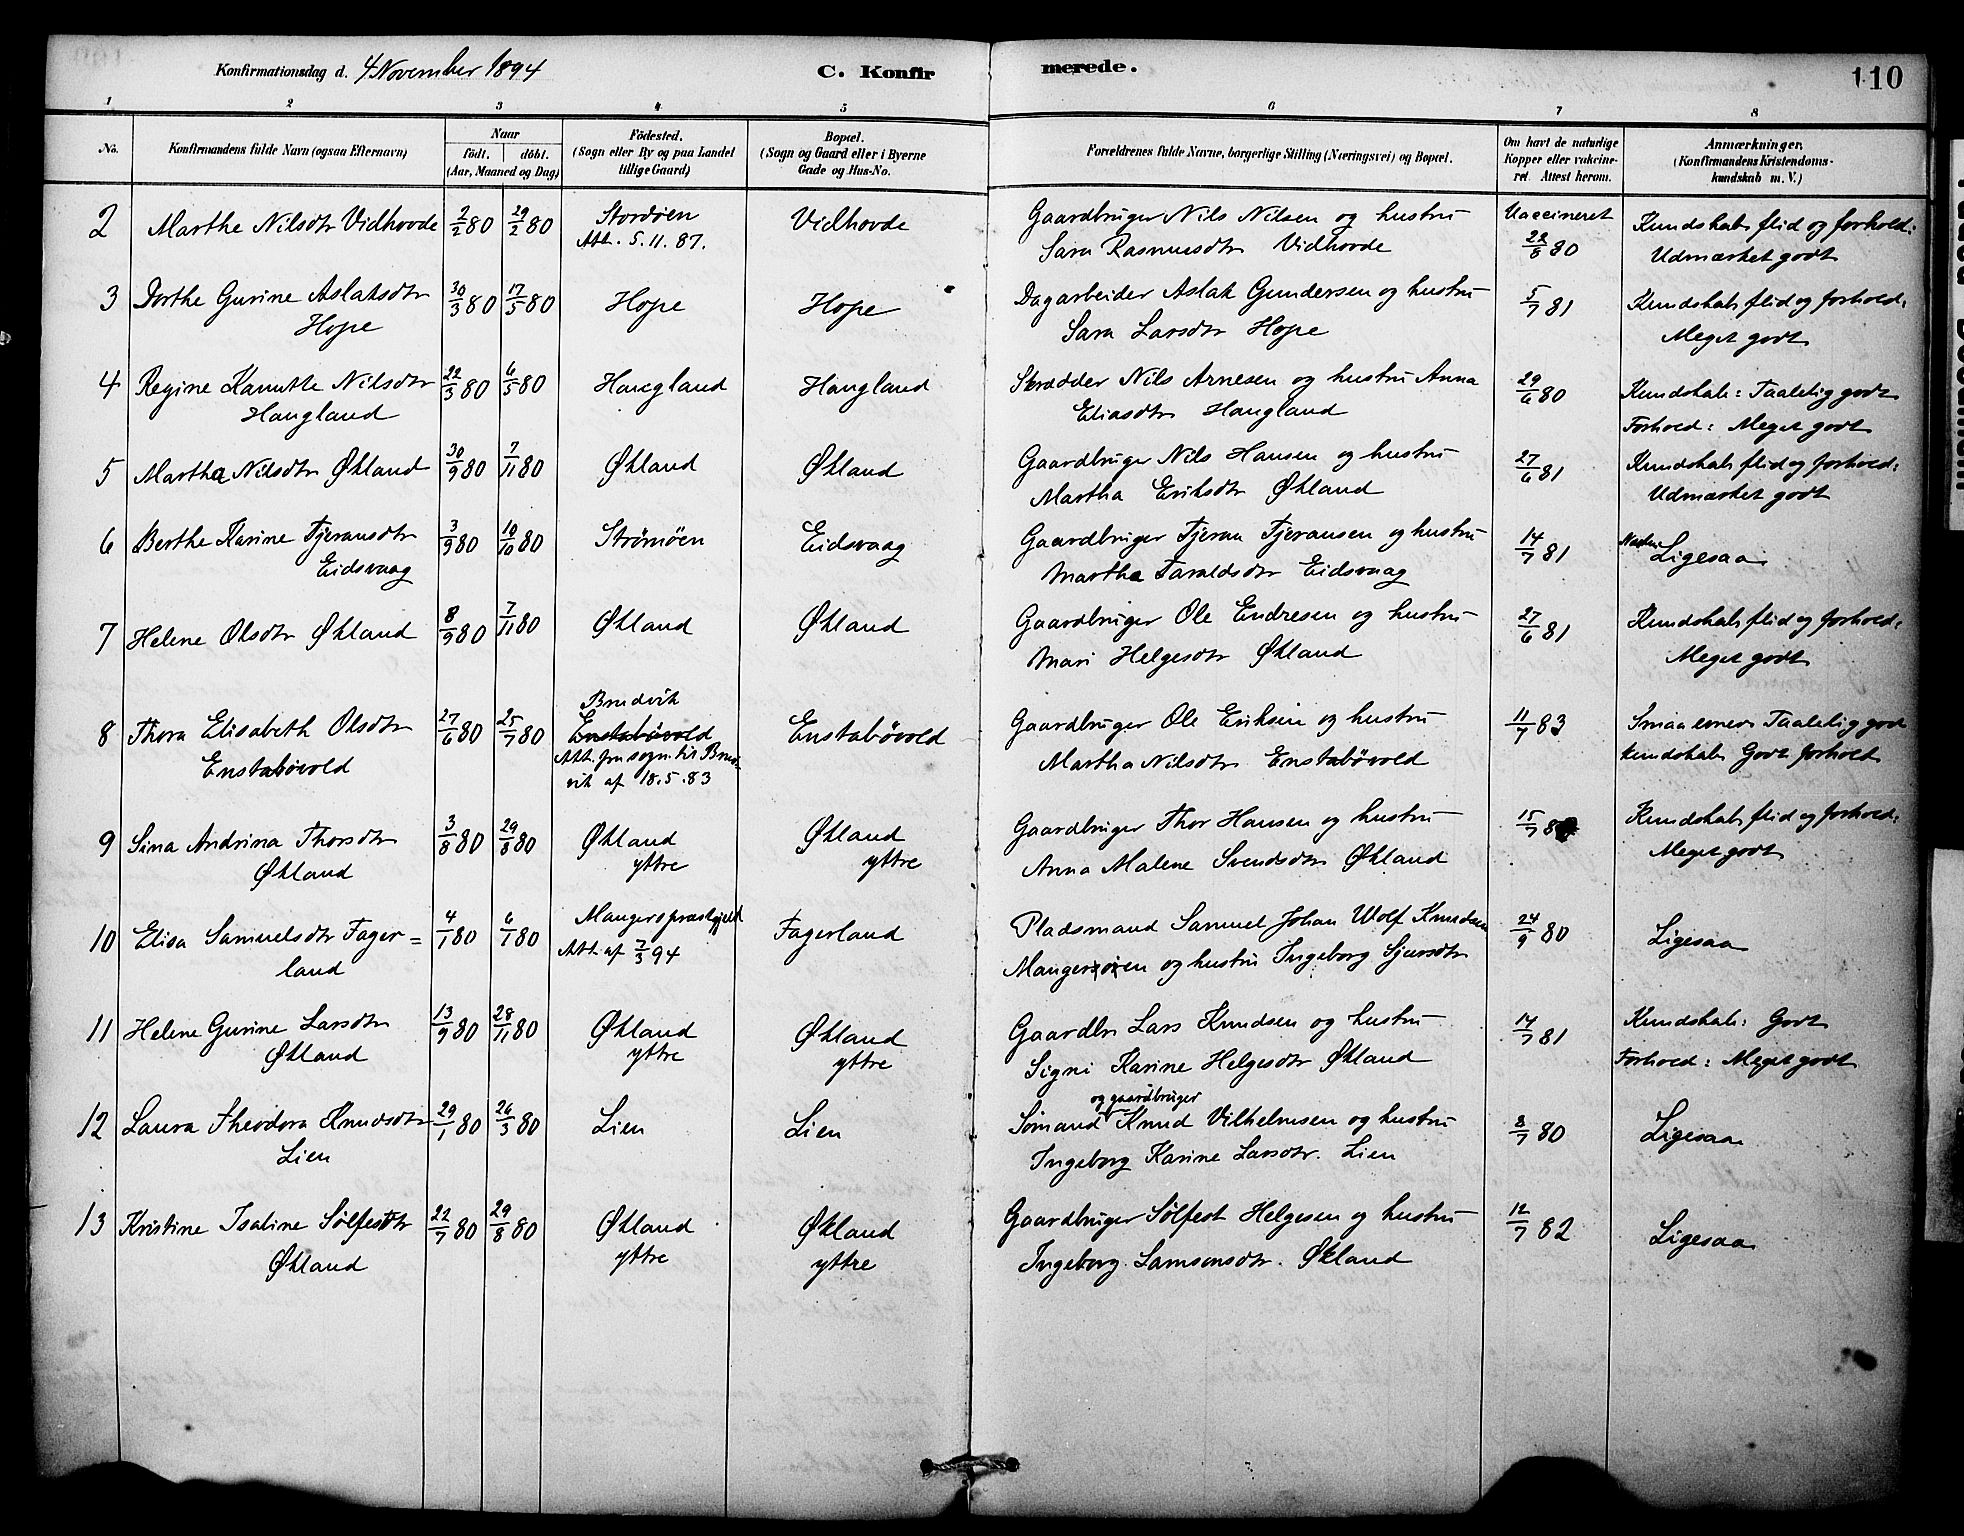 Konfirmationsdag d. 4 November 1894 C. Konfir merede. 110
1 2 3 4 5 6 7 8
No.
Konfirmandens fulde Navn (ogsaa Efternavn)
Naar
födt. döbt.
(Aar, Maaned og Dag)
Födested.
(Sogn eller By og paa Landet
tillige Gaard)
Bopæl.
(Sogn og Gaard eller i Byerne
Gade og Hus-No.
Forældrenes fulde Navne, borgerlige Stilling (Næringsvei) og Bopæl.
Om havt de naturlige
Kopper eller vakcine-
ret. Attest herom.
Anmærkninger.
(Konfirmandens Kristendoms-
kundskab m. V.)
2 Marthe Nilsdtr Vidhovde 2/2 80 29/2 80 Stordöen Vidhovde Gaardbruger Nils Nilsen og hustru Vaccineret Kundskab, flid og forhold:
Att. 5.11.87. Sara Rasmusdtr Vidhovde 22/8 80 Udmærket godt
3 Dorthe Gurine Aslaksdtr 30/3 80 17/5 80 Hope Hope Dagarbeider Aslak Gundersen og hustru 5/7 81 Kundskab, flid og forhold:
Hope Sara Larsdtr Hope Meget godt
4 Regine Kanutte Nilsdtr 22/3 80 6/5 80 Haugland Haugland Skrædder Nils Arnesen og hustru Anna 29/6 80 Kundskab: Taalelig godt
Haugland Eliasdtr Haugland Forhold: Meget godt
5 Martha Nilsdtr Økland 30/9 80 7/11 80 Økland Økland Gaardbruger Nils Hansen og hustru 27/6 81 Kundskab, flid og forhold:
Martha Eriksdtr Økland Udmærket godt
6 Berthe Karine Tjeransdtr 3/9 80 10/10 80 Strømöen Eidsvaag Gaardbruger Tjeran Tjeransen og hustru 14/7 81 Næsten Ligesaa
Eidsvaag Martha Taraldsdtr Eidsvaag
7 Helene Olsdtr Økland 8/9 80 7/11 80 Økland Økland Gaardbruger Ole Endresen og hustru 27/6 81 Kundskab, flid og forhold:
Mari Helgesdtr Økland Meget godt
Bruvik
8 Thora Elisabeth Olsdtr 27/6 80 25/7 80 Enstabövold Enstabövold Gaardbruger Ole Eriksen og hustru 11/7 83 Smaa evner Taalelig godt
Enstabövold Att. fra sogn. til Bru- Martha Nilsdtr Enstabövold kundskab Godt forhold
vik af 18.5.83
9 Sina Andrina Thorsdtr 3/8 80 29/8 80 Økland Økland Gaardbruger Thor Hansen og hustru 15/7 8 Kundskab, flid og forhold:
Økland yttre yttre Anna Malene Svendsdtr Økland Meget godt
10 Elisa Samuelsdtr Fager= 4/1 80 6/1 80 Mangers præstgjeld Fagerland Pladsmand Samuel Johan Wolf Knudsen 24/9 80 Ligesaa
land Att. af 7/3 94 Mangersöen og hustru Ingeborg Sjursdtr
11 Helene Gurine Larsdtr 13/9 80 28/11 80 Økland Økland Gaardbr Lars Knudsen og hustru 14/7 81 Kundskab: Godt
Økland yttre yttre Signi Karine Helgesdtr Økland Forhold: Meget godt
og gaardbruger
12 Laura Theodora Knudsdtr 29/1 80 26/3 80 Lien Lien Sømand Knud Vilhelmsen og hustru 8/7 80 Ligesaa
Lien Ingeborg Karine Larsdtr. Lien
13 Kristine Isaline Sölfestdtr 22/7 80 29/8 80 Økland Økland Gaardbruger Sölfest Helgesen og hustru 12/7 82 Ligesaa
Økland yttre yttre Ingeborg Samsonsdtr. Økland